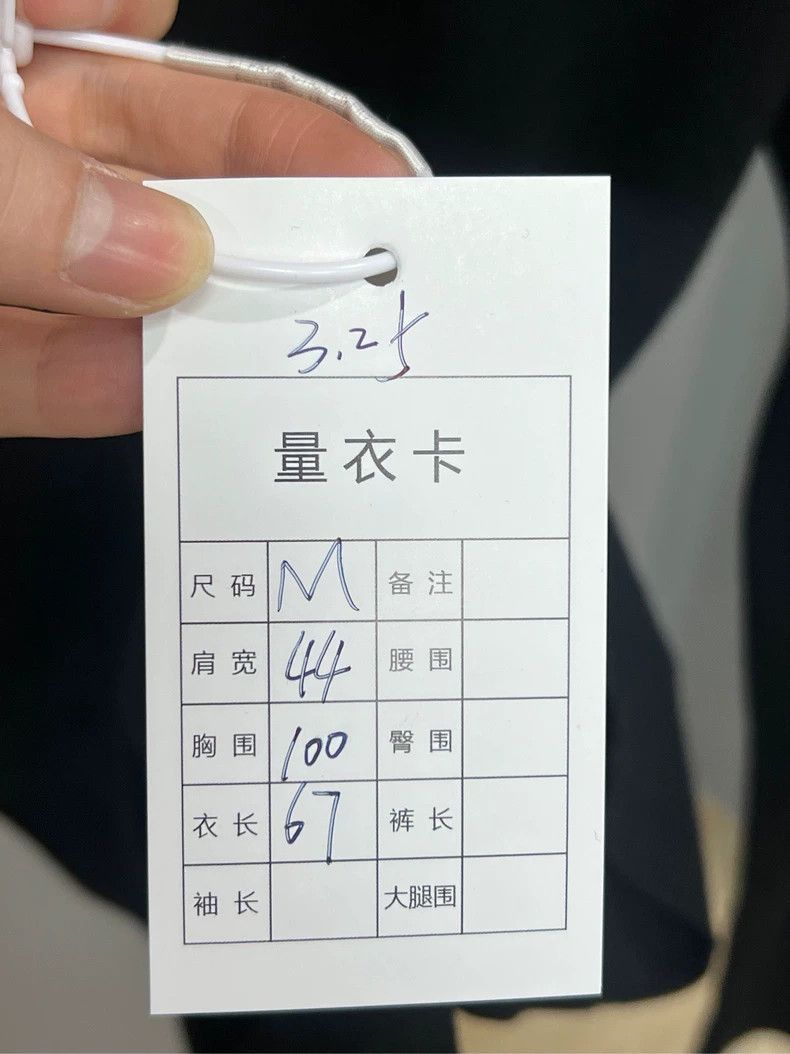 3.25
量衣卡
尺码 M 备注
肩宽 44 腰围
胸围 100 臀围
衣长 67 裤长
袖长 大腿围